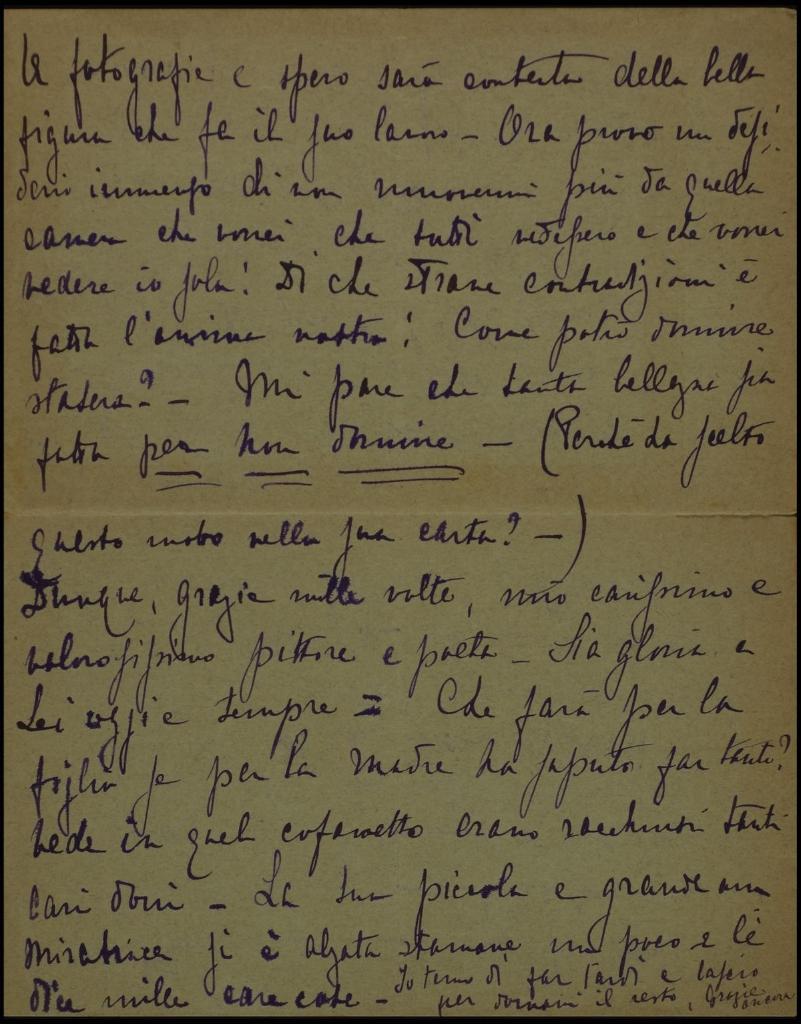 le fotografie e spero sarà contenta della bella
figura che fa il suo lavoro – Ora provo un desi
derio immenso di non muovermi più da quella
camera che vorrei che tutti vedessero e che vorrei
vedere io sola! Di che strane contradizioni è
fatta l'anima nostra! Come potrò dormire
stasera? – Mi pare che tanta bellezza sia
fatta per non dormire – (Perchè ha scelto
questo motto nella sua carta? –)
Dunque, grazie mille volte, mio carissimo e
valorosissimo pittore e poeta – Sia gloria a
Lei oggi e sempre = Che farà per la
figlia se per la madre ha saputo far tanto?
Vede in quel cofanetto erano racchiusi tanti
cari doni – La sua piccola e grande am
miratrice si è alzata stamane un poco e le
dice mille care cose – Io temo di far tardi e lascio
per domani il resto, Grazie ancora